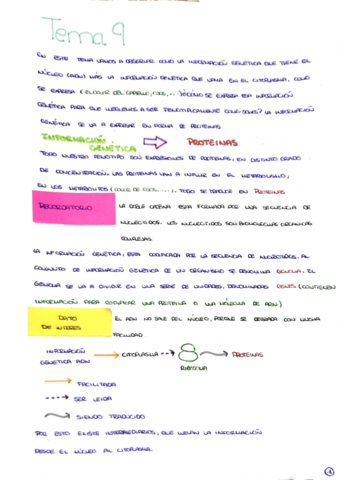 Tema 9
EN ESTE TEMA VAMOS A APRENDER COMO LA INFORMACIÓN GENÉTICA QUE TIENE EL
NÚCLEO (ADN) MÁS LA INFORMACIÓN GENÉTICA QUE VIAJA EN EL CITOPLASMA, COMO
SE EXPRESA (EL COLOR DEL CABELLO, OJOS, ...) ¿CÓMO SE EXPRESA ESA INFORMACIÓN
GENÉTICA PARA QUE LLEGUEMOS A SER FENOTIPICAMENTE COMO SOMOS? LA INFORMACIÓN
GENÉTICA SE VA A EXPRESAR EN FORMA DE PROTEINAS
INFORMACIÓN GENÉTICA PROTEINAS
TODO NUESTRO FENOTIPO SON EXPRESIONES DE PROTEINAS, EN DISTINTO GRADO
DE CONCENTRACIÓN, LAS PROTEINAS VAN A INFLUIR EN EL METABOLISMO,
EN LOS METABOLITOS (COLOR DE OJOS, ...), TODO SE TRADUCE EN PROTEINAS
RECORDATORIO LA DOBLE CADENA ESTA FORMADA POR UNA SECUENCIA DE
NUCLEOTIDOS. LOS NUCLEOTIDOS SON BIOMOLECULAS ORGANICAS
LA INFORMACIÓN GENÉTICA, ESTA CODIFICADA POR LA SECUENCIA DE NUCLEOTIDOS. AL
CONJUNTO DE INFORMACIÓN GENÉTICA DE UN ORGANISMO SE DENOMINA GENOMA. EL
GENOMA SE VA A DIVIDIR EN UNA SERIE DE UNIDADES, DENOMINADAS GENES (CONTIENEN
INFORMACIÓN PARA CODIFICAR UNA PROTEINA O UNA MOLECULA DE ARN)
DATO DE INTERES EL ADN NO SALE DEL NÚCLEO, PORQUE SE DEGRADA CON MUCHA
FACILIDAD
INFORMACIÓN GENETICA ADN CITOPLASMA RIBOSOMA PROTEINAS
FACILITADA
SER LEIDA
SIENDO TRADUCIDO
POR ESTO EXISTE INTERMEDIARIOS, QUE LLEVAN LA INFORMACIÓN
DESDE EL NÚCLEO AL CITOPLASMA.
1